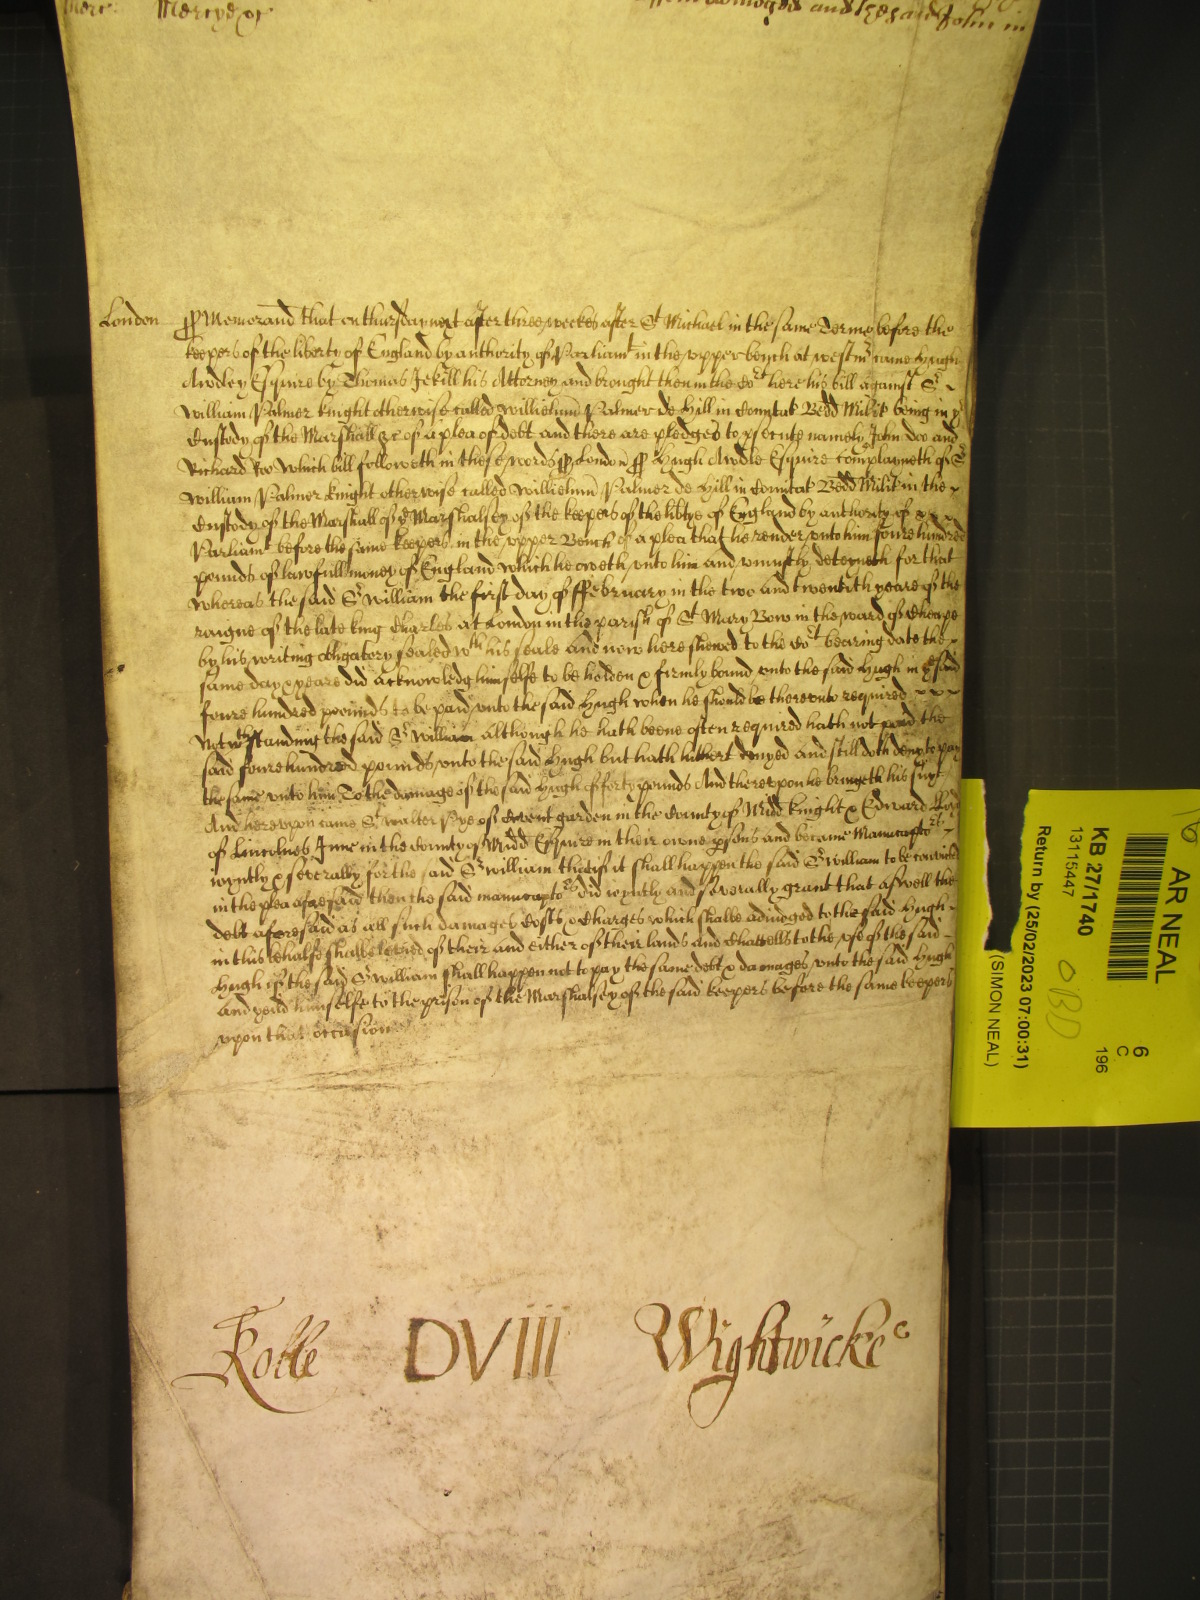 Merc: Mercye &c and the said John in
London ss Memorand that on thursday next after three weekes after St Michael in the same Terme before the
keepers of the liberty of England by authority of Parliamt in the upper bench at westmr came Hugh
Awdley Esquire by Thomas Jekill his Attorney and brought then in the Cort here his bill against Sr
William Palmer knight otherwise called Willielmu Palmer de Hill in Comitat Bedd Milit being in ye
Custody of the Marshall &c of a plea of debt and there are pledges to psecute namely John Doo and
Richard Roo Which bill followeth in these words ss London ss Hugh Awdle Esquire complayneth of Sr
William Palmer knight otherwise called Willielmu Palmer de Hill in Comitat Bedd Milit in the
Custody of the Marshall of ye Marshalsey of the keepers of the libtye of England by authority of
Parliamt before the same keepers in the upper Bench of a plea that he render unto him foure hundred
pounds of lawfull money of England which he oweth unto him and uniustly deteyneth for that
whereas the said Sr William the first day of ffebruary in the two and twentith yeare of the
raigne of the late king Charles at London in the parish of St Mary Bow in the ward of Cheape
by his writing obligatory sealed wth his seale and now here shewed to the Cort bearing date the
same day & yeare did acknowledg himselfe to be holden & firmly bound unto the said Hugh in ye said
foure hundred pounds to be paid unto the said Hugh when he should be thereunto required
Notwthstanding the said Sr William although he hath beene often required hath not paid the
said foure hundred pounds unto the said Hugh but hath hithert denyed and still doth deny to pay
the same unto him To the damage of the said Hugh of forty pounds And thereupon he bringeth his suyt
And hereupon came Sr Walter Pye of Covent garden in the County of Midd knight & Edward
of Lincolnes Inne in the County of Midd Esquire in their owne psons and became Manucaptors
ioyntly & severally for the said Sr William that if it shall happen the said Sr William to be convicted
in the plea aforesaid then the said manucaptors did ioyntly and severally grant that aswell the
debt aforesaid as all such damages Costs & Charges which shalbe adiudged to the said Hugh
in this behalfe shalbe levied of their and either of their lands and Chattells to the use of the said
Hugh if the said Sr William shall happen not to pay the same debt & damages unto the said Hugh
and yeild himselfe to the prison of the Marshalsey of the said keepers before the same keepers
upon that occasion
Rolle DVIII Wightwicke
AR NEAL
KB 27/1740
13115447
Return by (25/02/2023 07:00:31)
(SIMON NEAL)
6
C
196
OBD